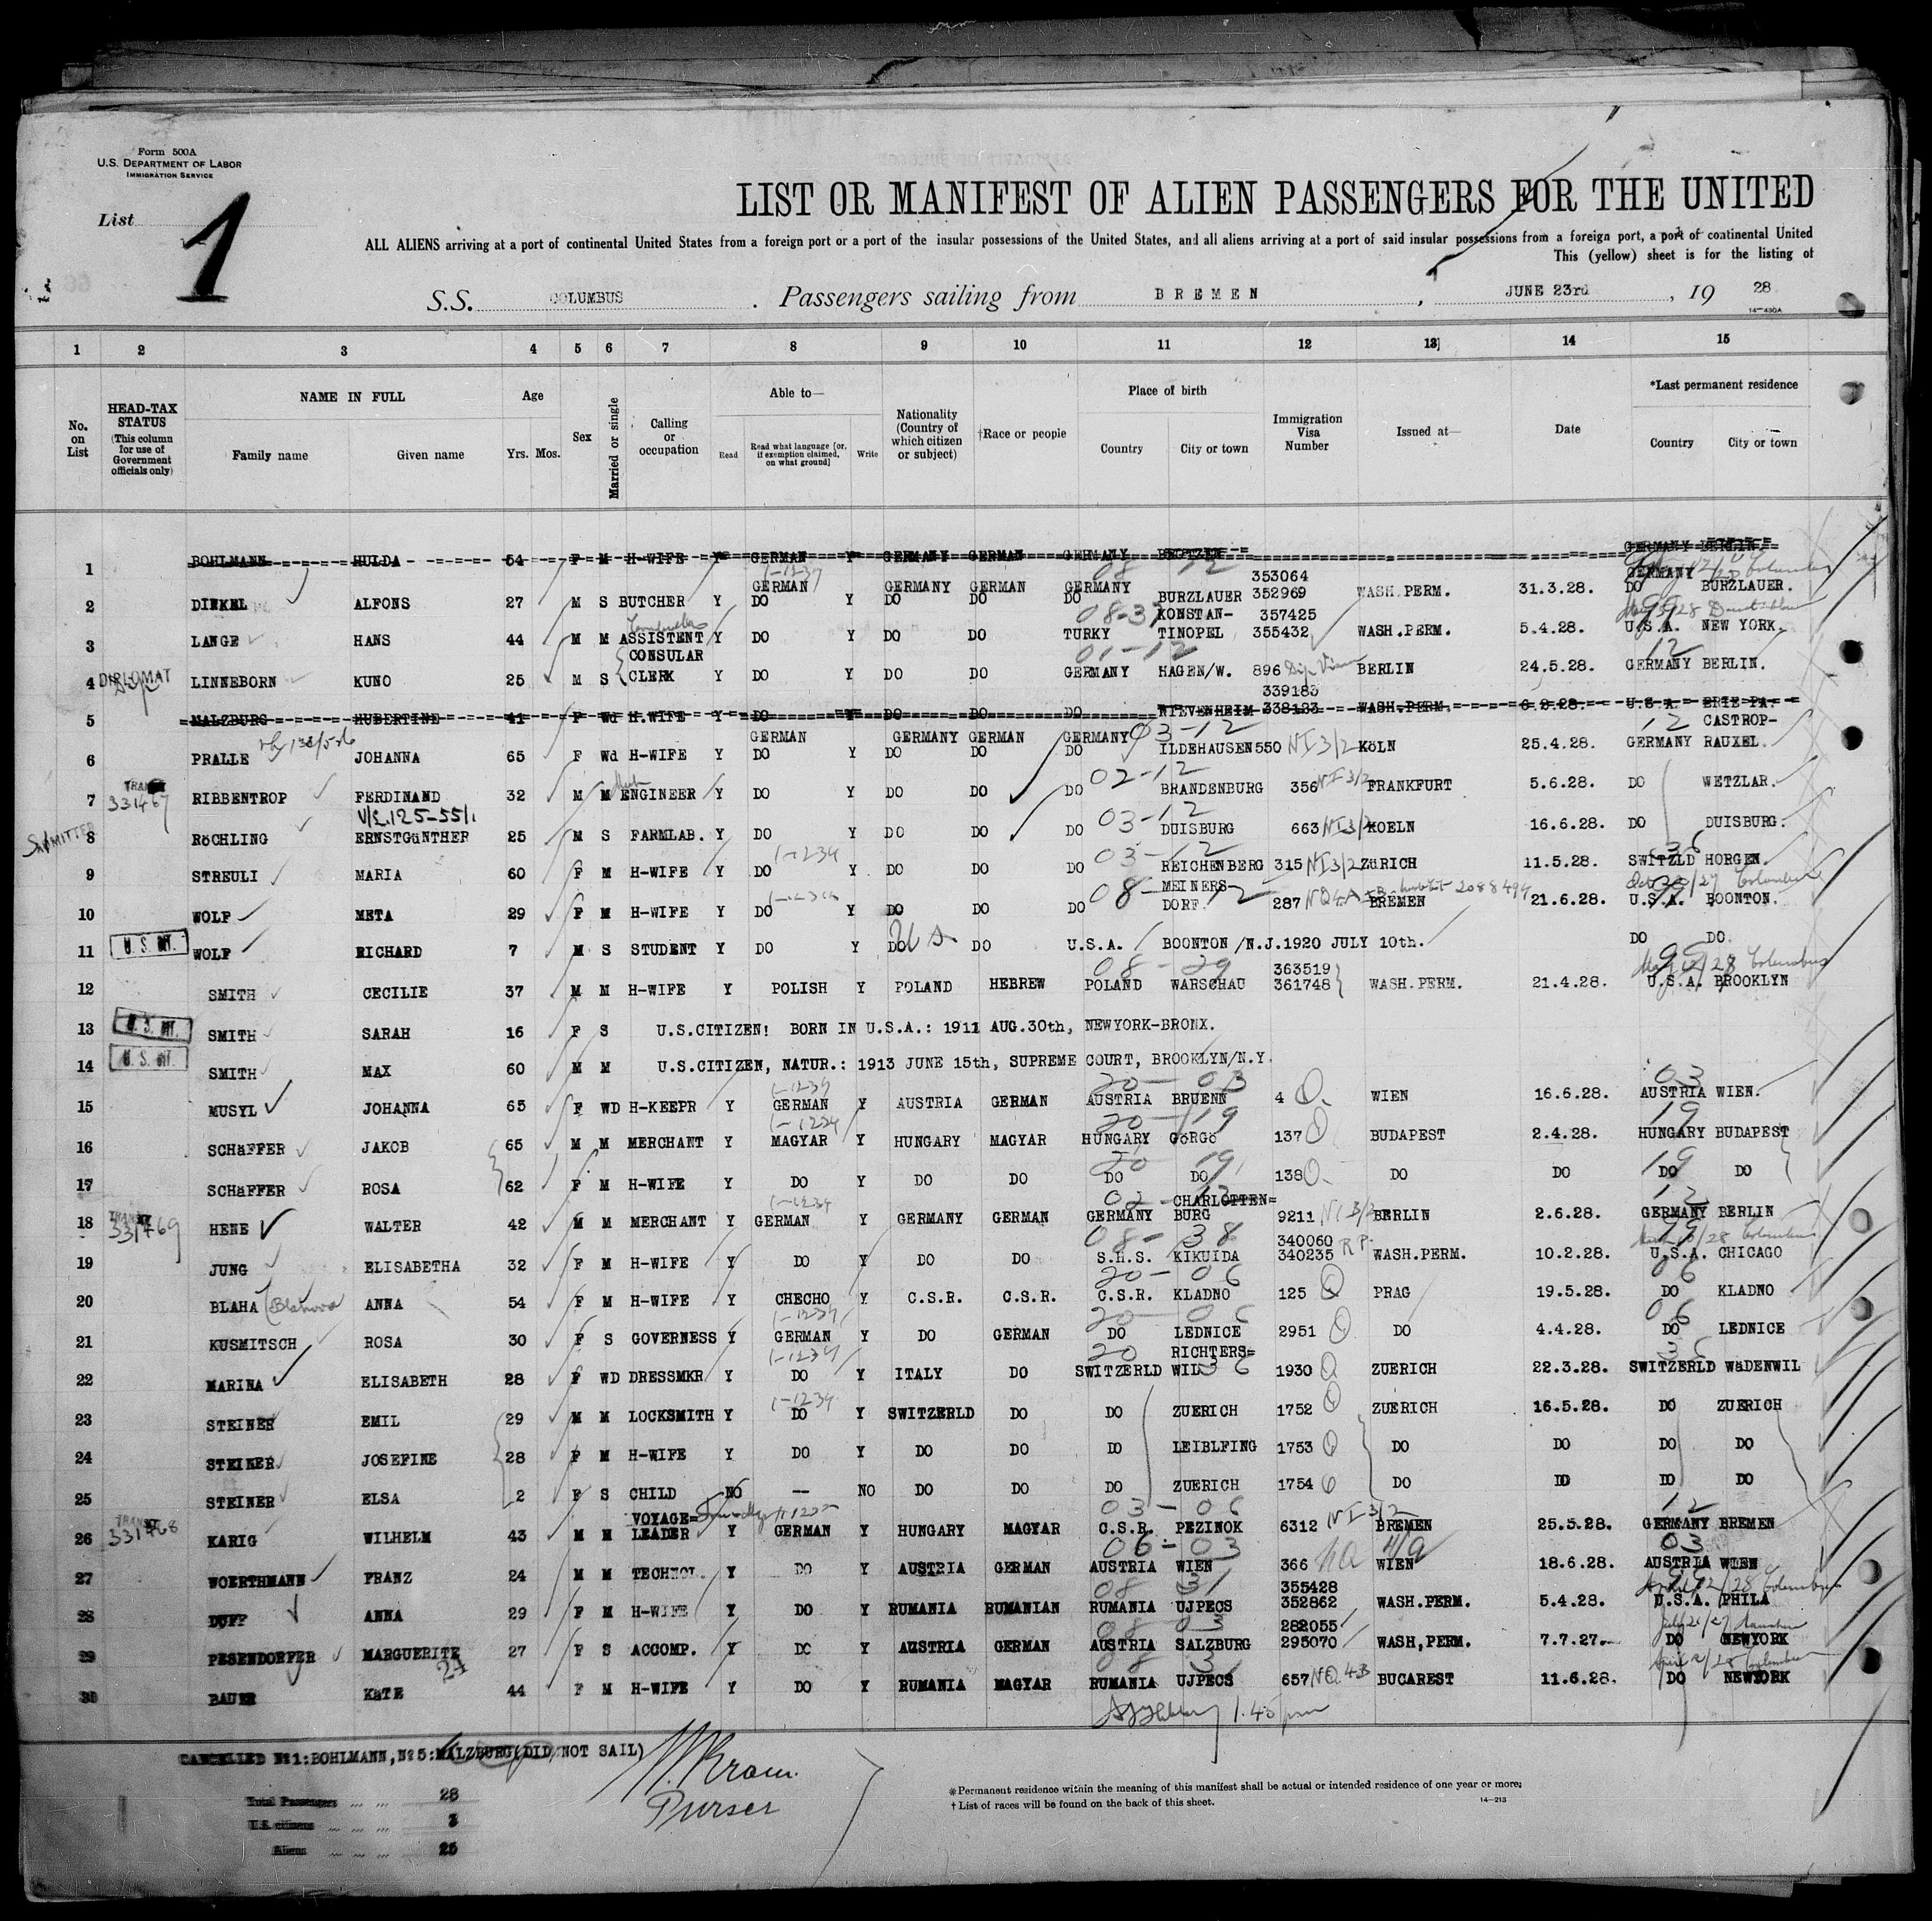 Form 500A
U.S. DEPARTMENT OF LABOR
IMMIGRATION SERVICE
List 1
LIST OR MANIFEST OF ALIEN PASSENGERS FOR THE UNITED
ALL ALIENS arriving at a port of continental United States from a foreign port or a port of the insular possessions of the United States, and all aliens arriving at a port of said insular possessions from a foreign port, a port of continental United
This (yellow) sheet is for the listing of
S.S. COLUMBUS. Passengers sailing from BREMEN, JUNE 23rd, 19 28
14—430A
1 2 3 4 5 6 7 8 9 10 11 12 13 14 15
No. on List
HEAD-TAX STATUS (This column for use of Government officials only)
NAME IN FULL Family name Given name
Age Yrs. Mos.
Sex
Married or single
Calling or occupation
Able to— Read Read what language [or, if exemption claimed, on what ground] Write
Nationality (Country of which citizen or subject)
†Race or people
Place of birth Country City or town
Immigration Visa Number
Issued at—
Date
*Last permanent residence Country City or town
1 BOHLMANN HULDA 54 F M H-WIFE Y GERMAN Y GERMANY GERMAN GERMANY GERMANY BERLIN
1-1234 08 12
GERMAN GERMANY GERMAN GERMANY 353064 GERMANY
2 DINKEL ALFONS 27 M S BUTCHER Y DO Y DO DO DO BURZLAUER 352969 WASH.PERM. 31.3.28. DO BURZLAUER.
08-37 KONSTAN- 357425
3 LANGE HANS 44 M M ASSISTENT Y DO Y DO DO TURKY TINOPEL 355432 WASH.PERM. 5.4.28. U.S.A. NEW YORK.
CONSULAR 01-12 12
4 DIPLOMAT LINNEBORN KUNO 25 M S CLERK Y DO Y DO DO GERMANY HAGEN/W. 896 Dip Visa BERLIN 24.5.28. GERMANY BERLIN.
339183
5 MALZBURG HUBERTINE 41 F Wd H.WIFE Y DO Y DO DO DO NIEVENHEIM 338133 WASH.PERM. U.S.A. ERIE PA.
GERMAN GERMANY GERMAN GERMANY 03-12 12 CASTROP-
6 PRALLE JOHANNA 65 F Wd H-WIFE Y DO Y DO DO DO ILDEHAUSEN 550 NI 3/2 KöLN 25.4.28. GERMANY RAUXEL.
02-12
7 331467 RIBBENTROP FERDINAND 32 M M ENGINEER Y DO Y DO DO DO BRANDENBURG 356 NI 3/2 FRANKFURT 5.6.28. DO WETZLAR.
V/L 125-551 03-12
8 RöCHLING ERNSTGüNTHER 25 M S FARMLAB. Y DO Y DO DO DO DUISBURG 663 NI 3/2 KOELN 16.6.28. DO DUISBURG.
1-1234 03-12 36
9 STREULI MARIA 60 F M H-WIFE Y DO Y DO DO DO REICHENBERG 315 NI 3/2 ZüRICH 11.5.28. SWITZLD HORGEN.
1-1234 08-12 MEINERS-
10 WOLF META 29 F M H-WIFE Y DO Y DO DO DO DORF. 287 BREMEN 21.6.28. U.S.A. BOONTON.
11 U.S. CIT. WOLF RICHARD 7 M S STUDENT Y DO Y DO DO U.S.A. BOONTON/N.J.1920 JULY 10th. DO DO.
08-29 363519
12 SMITH CECILIE 37 M M H-WIFE Y POLISH Y POLAND HEBREW POLAND WARSCHAU 361748 WASH.PERM. 21.4.28. U.S.A. BROOKLYN
13 U.S. CIT. SMITH SARAH 16 F S U.S.CITIZEN! BORN IN U.S.A.: 1911 AUG.30th, NEWYORK-BRONX.
14 U.S. CIT. SMITH MAX 60 M M U.S.CITIZEN, NATUR.: 1913 JUNE 15th, SUPREME COURT, BROOKLYN/N.Y.
1-1234 20-03 03
15 MUSYL JOHANNA 65 F WD H-KEEPR Y GERMAN Y AUSTRIA GERMAN AUSTRIA BRUENN 4 WIEN 16.6.28. AUSTRIA WIEN.
1-1234 20-19 19
16 SCHäFFER JAKOB 65 M M MERCHANT Y MAGYAR Y HUNGARY MAGYAR HUNGARY GöRGö 137 BUDAPEST 2.4.28. HUNGARY BUDAPEST
20 19 19
17 SCHäFFER ROSA 62 F M H-WIFE Y DO Y DO DO DO DO 138 DO DO DO DO
1-1234 02-12 CHARLOTTEN= 12
18 331469 HENE WALTER 42 M M MERCHANT Y GERMAN Y GERMANY GERMAN GERMANY BURG 9211 NI 3/2 BERLIN 2.6.28. GERMANY BERLIN
08-38 340060
19 JUNG ELISABETHA 32 F M H-WIFE Y DO Y DO DO S.H.S. KIKUIDA 340235 RP. WASH.PERM. 10.2.28. U.S.A. CHICAGO
20-06 06
20 BLAHA (Blahova ANNA 54 F M H-WIFE Y CHECHO Y C.S.R. C.S.R. C.S.R. KLADNO 125 PRAG 19.5.28. DO KLADNO
1-1234 20-06 06
21 KUSMITSCH ROSA 30 F S GOVERNESS Y GERMAN Y DO GERMAN DO LEDNICE 2951 DO 4.4.28. DO LEDNICE
1-1234 20 RICHTERS= 36
22 MARINA ELISABETH 28 F WD DRESSMKR Y DO Y ITALY DO SWITZERLD WIL 36 1930 ZUERICH 22.3.28. SWITZERLD WäDENWIL
1-1234
23 STEINER EMIL 29 M M LOCKSMITH Y DO Y SWITZERLD DO DO ZUERICH 1752 ZUERICH 16.5.28. DO ZUERICH
24 STEINER JOSEFINE 28 F M H-WIFE Y DO Y DO DO DO LEIBLFING 1753 DO DO DO DO
25 STEINER ELSA 2 F S CHILD NO — NO DO DO DO ZUERICH 1754 DO DO DO DO
VOYAGE= 03-06 NI 3/2 12
26 331468 KARIG WILHELM 43 M M LEADER Y GERMAN Y HUNGARY MAGYAR C.S.R. PEZINOK 6312 BREMEN 25.5.28. GERMANY BREMEN
06-03 03
27 WOERTHMANN FRANZ 24 M M TECHNOL. Y DO Y AUSTRIA GERMAN AUSTRIA WIEN 366 WIEN 18.6.28. AUSTRIA WIEN
08 31 355428
28 DUPP ANNA 29 F M H-WIFE Y DO Y RUMANIA RUMANIAN RUMANIA UJPECS 352862 WASH.PERM. 5.4.28. U.S.A. PHILA
08 03 282055
29 PESENDORFER MARGUERITE 27 F S ACCOMP. Y DO Y AUSTRIA GERMAN AUSTRIA SALZBURG 295070 WASH,PERM. 7.7.27. DO NEWYORK
24 08 31
30 BAUER KäTE 44 F M H-WIFE Y DO Y RUMANIA MAGYAR RUMANIA UJPECS 657 NQ 4B BUCAREST 11.6.28. DO NEWYORK
1.45 pm
CANCELLED No1:BOHLMANN, No5:MALZBURG(DID NOT SAIL)
Total Passengers 28
U.S. citizens 3
Aliens 25
Purser
*Permanent residence within the meaning of this manifest shall be actual or intended residence of one year or more.
†List of races will be found on the back of this sheet.
14—213